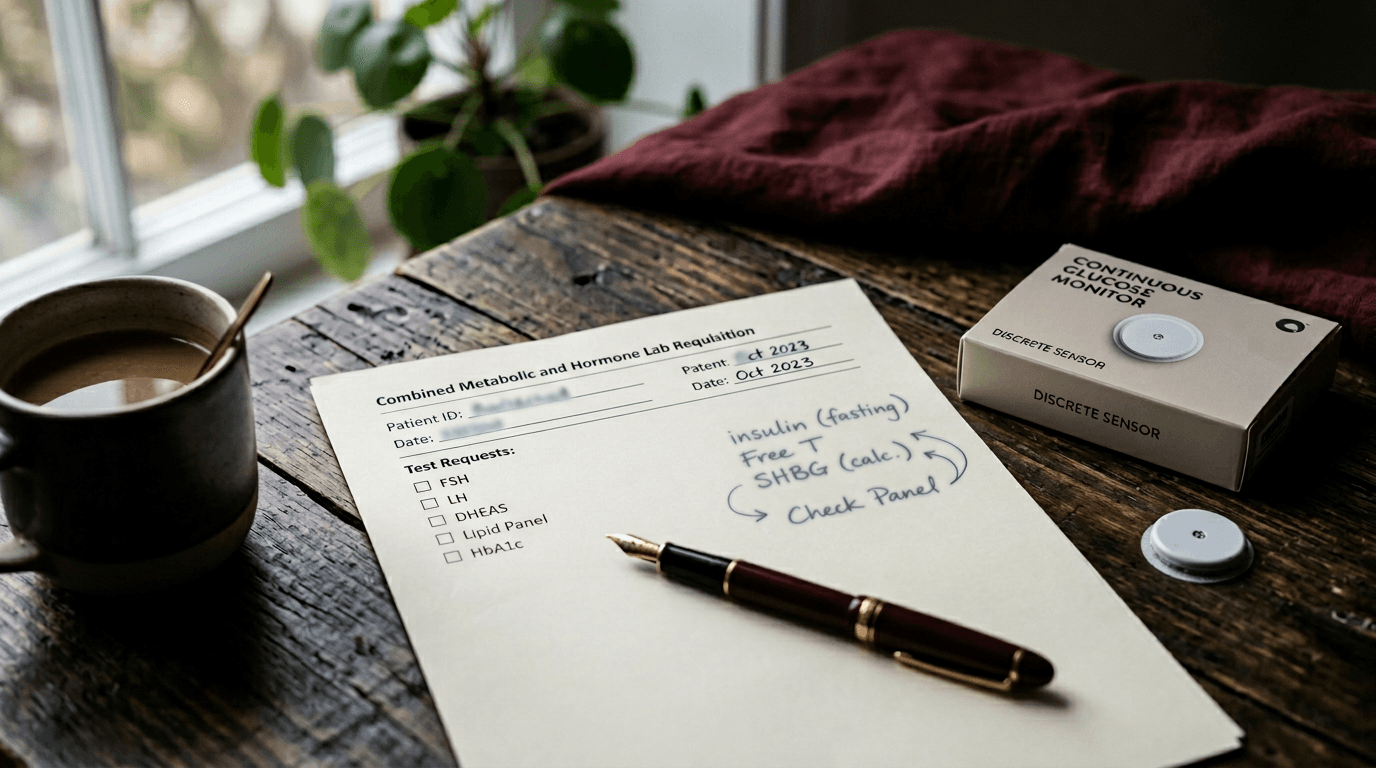 Combined Metabolic and Hormone Lab Requlaition
Patient ID:
Date:
Patent: ct 2023
Date: Oct 2023
Test Requests:
FSH
LH
DHEAS
Lipid Panel
HbA1c
insulin (fasting)
Free T
SHBG (calc.)
Check Panel
CONTINUOUS
GLUCOSE
MONITOR
DISCRETE SENSOR
DISCRETE SENSOR